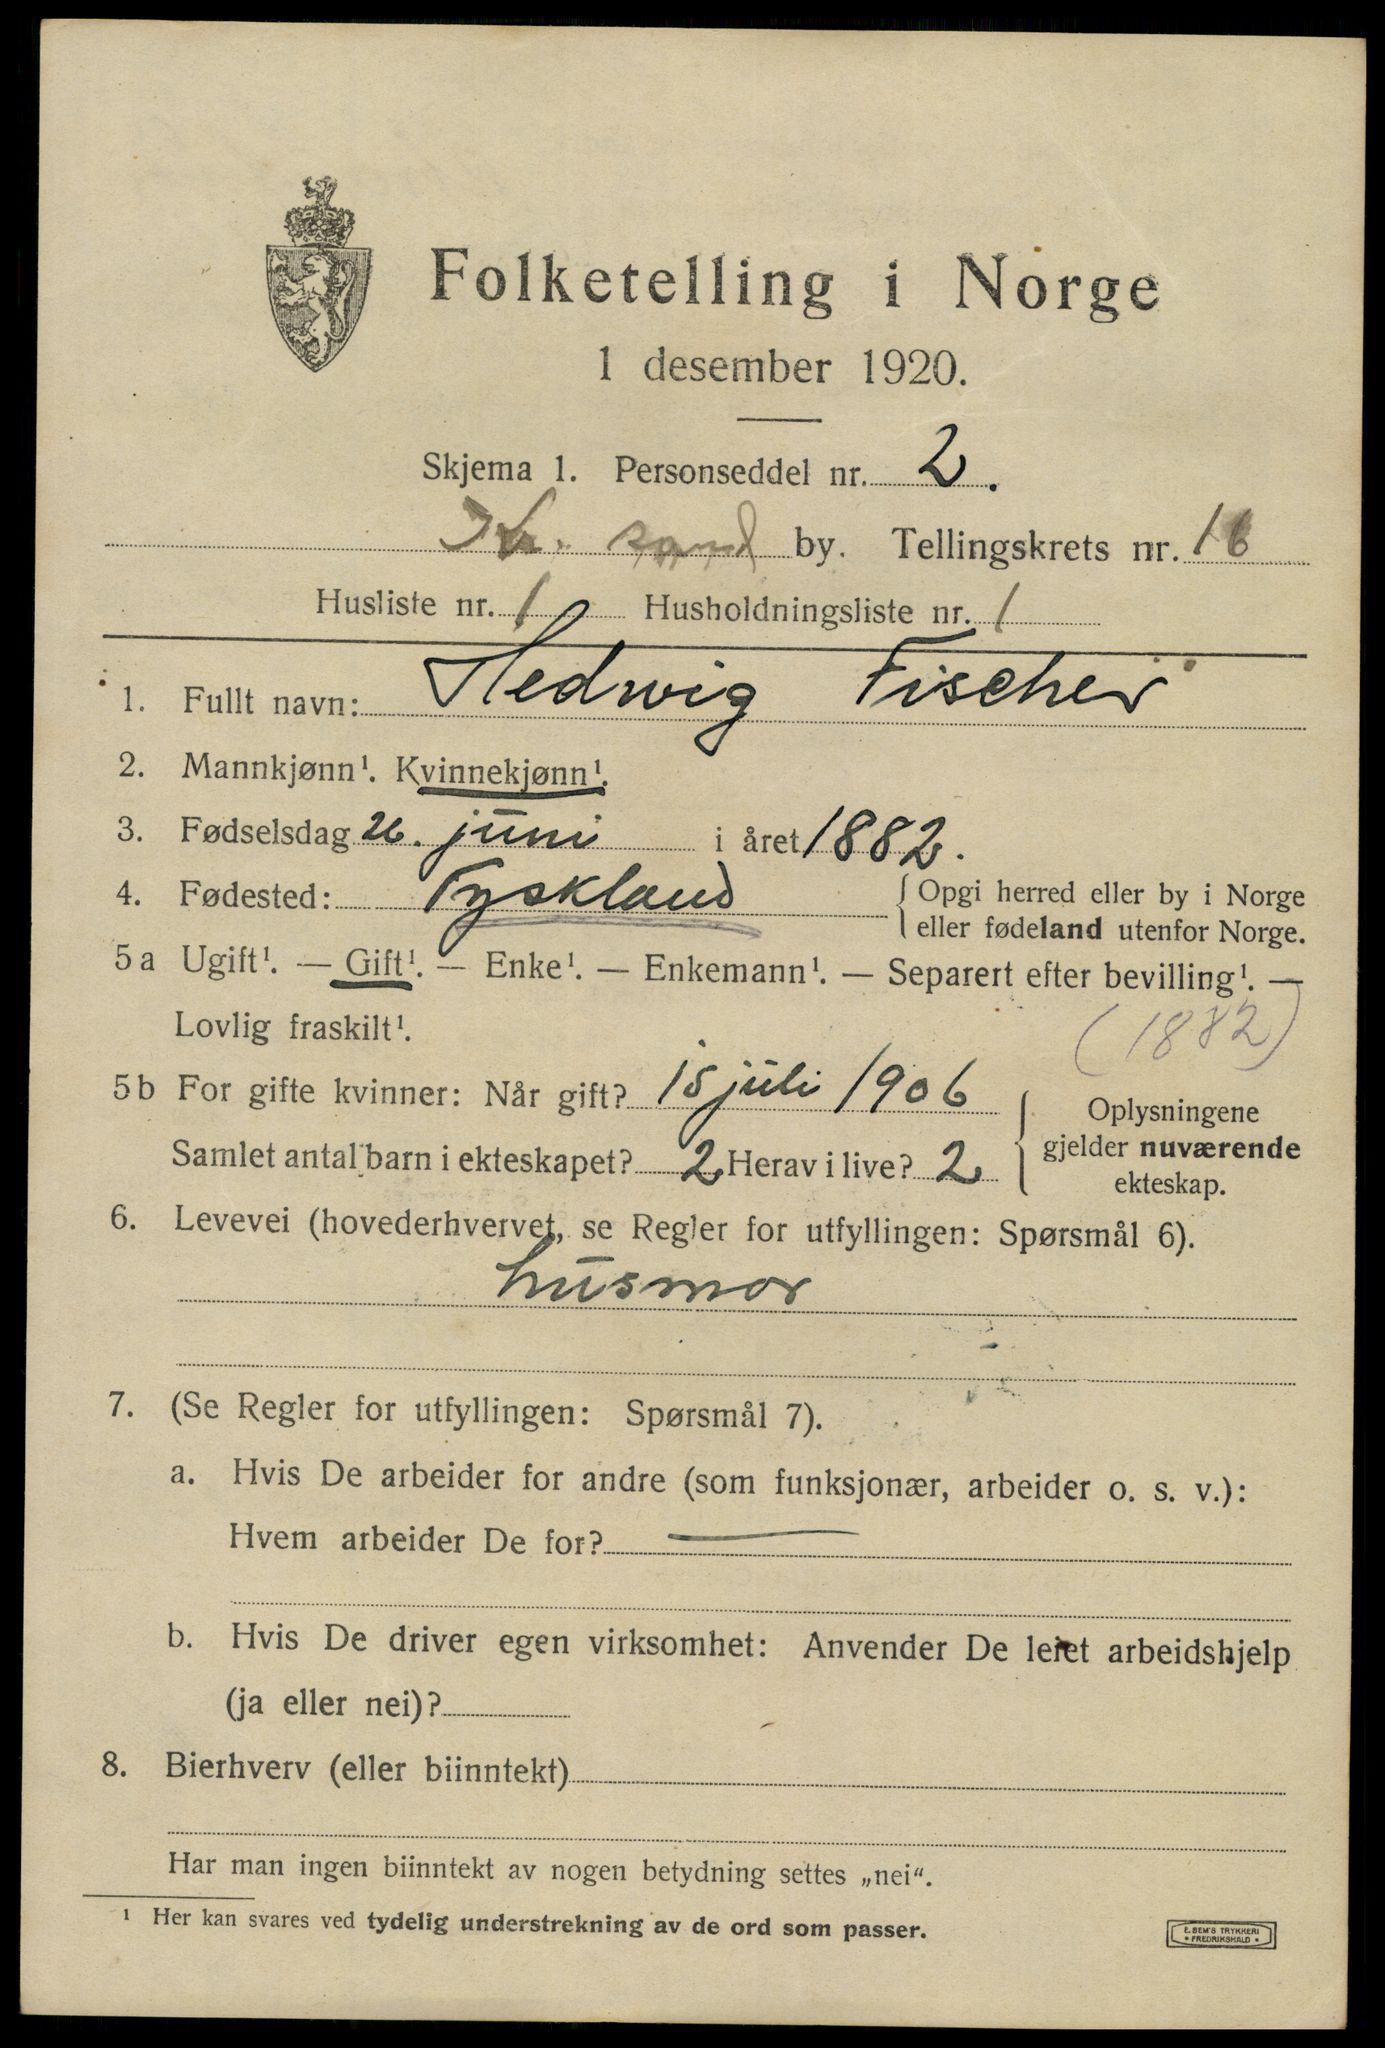 Folketelling i Norge
1 desember 1920.
Skjema 1. Personseddel nr. 2.
Kr. sand by. Tellingskrets nr. 16
Husliste nr. 1 Husholdningsliste nr. 1
1. Fullt navn: Hedwig Fischer
2. Mannkjønn¹. Kvinnekjønn¹.
3. Fødselsdag 26. juni i året 1882.
4. Fødested: Tyskland { Opgi herred eller by i Norge
eller fødeland utenfor Norge.
5a Ugift¹. — Gift¹. — Enke¹. — Enkemann¹. — Separert efter bevilling¹. —
Lovlig fraskilt¹. (1882)
5b For gifte kvinner: Når gift? 15 juli 1906
Samlet antal barn i ekteskapet? 2 Herav i live? 2
{ Oplysningene
gjelder nuværende
ekteskap.
6. Levevei (hovederhvervet, se Regler for utfyllingen: Spørsmål 6).
husmor
7. (Se Regler for utfyllingen: Spørsmål 7).
a. Hvis De arbeider for andre (som funksjonær, arbeider o. s. v.):
Hvem arbeider De for? —
b. Hvis De driver egen virksomhet: Anvender De leiet arbeidshjelp
(ja eller nei)?
8. Bierhverv (eller biinntekt)
Har man ingen biinntekt av nogen betydning settes „nei“.
¹ Her kan svares ved tydelig understrekning av de ord som passer.
E. SEM'S TRYKKERI
• FREDRIKSHALD •